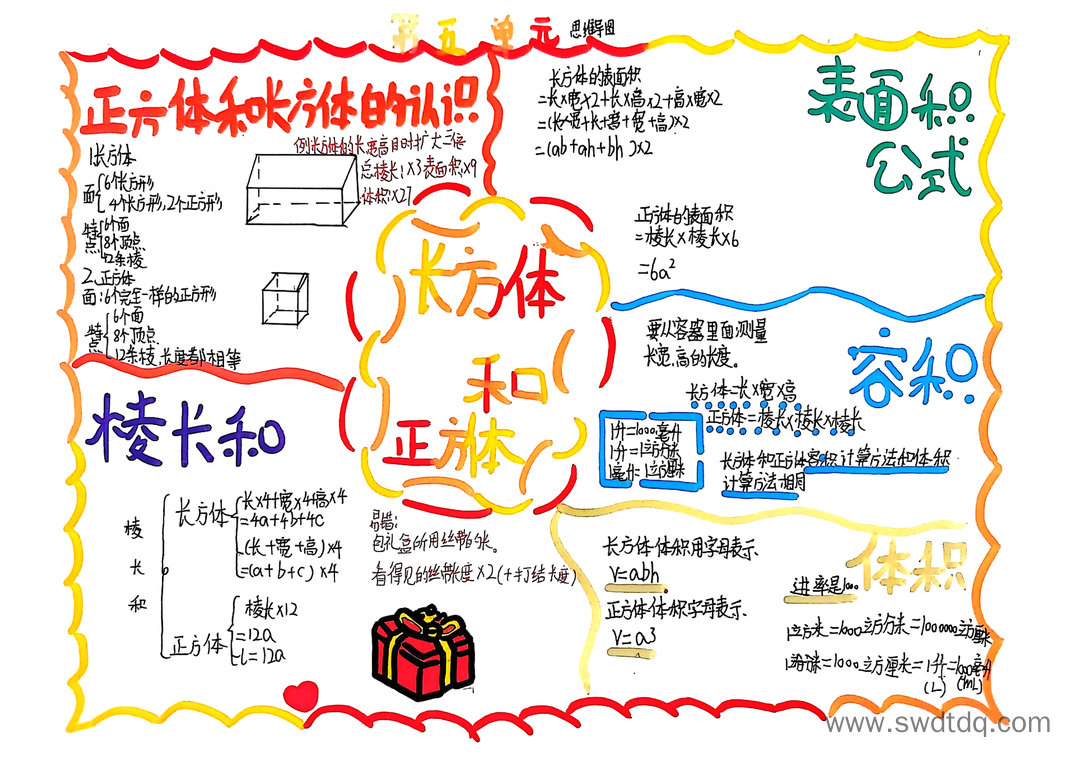 第五单元 思维导图
正方体和长方体的认识
1.长方体
面 6个长方形
4个长方形,2个正方形
特点 6个面
8个顶点
12条棱
2.正方体
面:6个完全一样的正方形
特点 6个面
8个顶点
12条棱,长度都相等
例长方体的长宽高同时扩大三倍
总棱长:×3表面积×9
体积×27
表面积
公式
长方体的表面积
=长×宽×2+长×高×2+高×宽×2
=(长×宽+长+高+宽+高)×2
=(ab+ah+bh)×2
正方体的表面积
=棱长×棱长×6
=6a²
长方体
和
正方体
容积
要从容器里面测量
长宽,高的长度。
长方体=长×宽×高
正方体=棱长×棱长×棱长
1升=1000毫升
1升=1立方分米
1毫升=1立方厘米
长方体和正方体容积计算方法和体积
计算方法相同
棱长和
棱长和
长方体
长×4+宽×4+高×4
=4a+4b+4c
(长+宽+高)×4
=(a+b+c)×4
正方体
棱长×12
=12a
-L=12a
易错:
包礼盒所用丝带的长。
看得见的丝带长度×2(+打结长度)
体积
长方体体积用字母表示
V=abh
正方体体积字母表示
V=a3
进率是1000
1立方米=1000立方分米=1000000立方厘米
1立方分米=1000立方厘米=1升=1000毫升
(L) (mL)
www.swdtdq.com